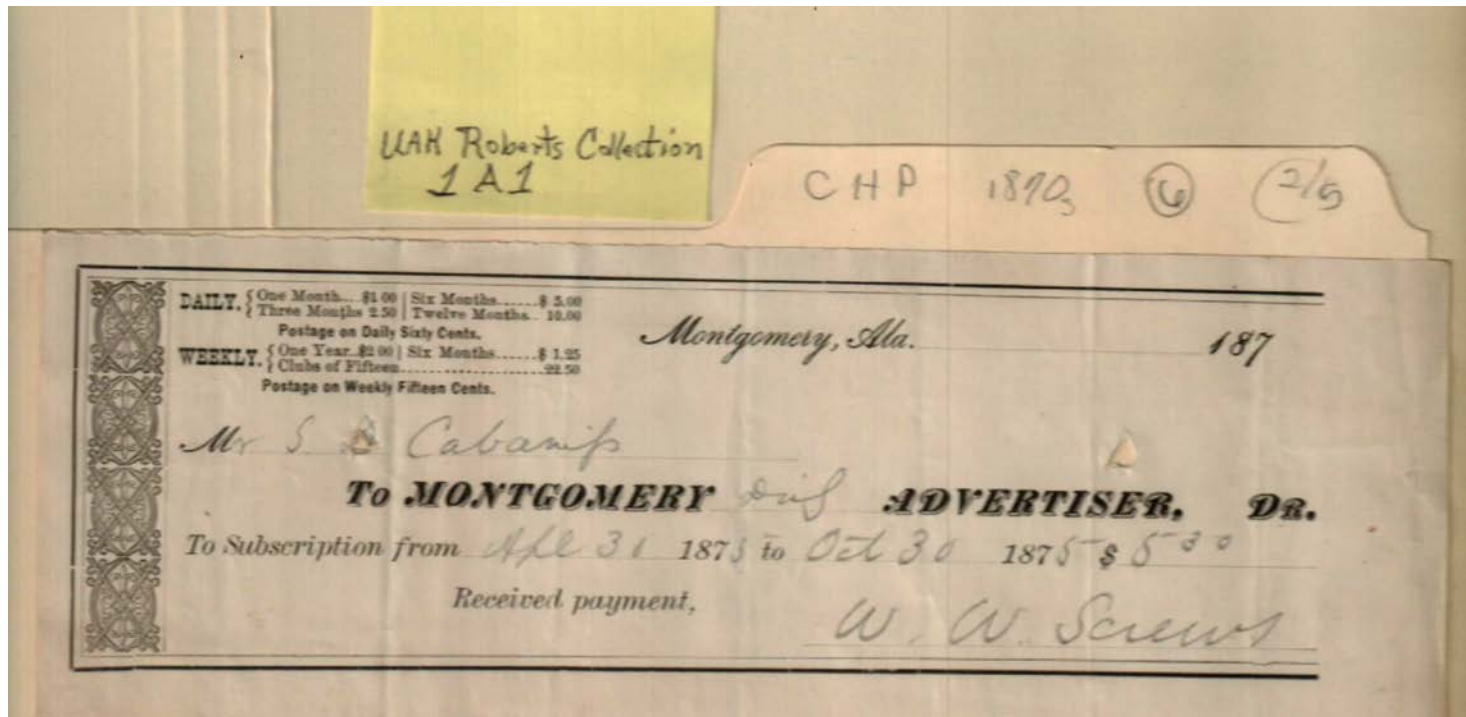 UAH Roberts Collection
1A1
CHP 1870s 6 2/5
DAILY. { One Month.... $1.00 | Six Months....... $ 5.00
{ Three Months 2.50 | Twelve Months.. 10.00
Postage on Daily Sixty Cents.
WEEKLY. { One Year..$2.00 | Six Months....... $ 1.25
{ Clubs of Fifteen........................ 22.50
Postage on Weekly Fifteen Cents.
Montgomery, Ala. 187
Mr S D Cabaniss
To MONTGOMERY ADVERTISER, DR.
To Subscription from Apl 30 1875 to Oct 30 1875 $ 5 00
Received payment,
W. W. Screws